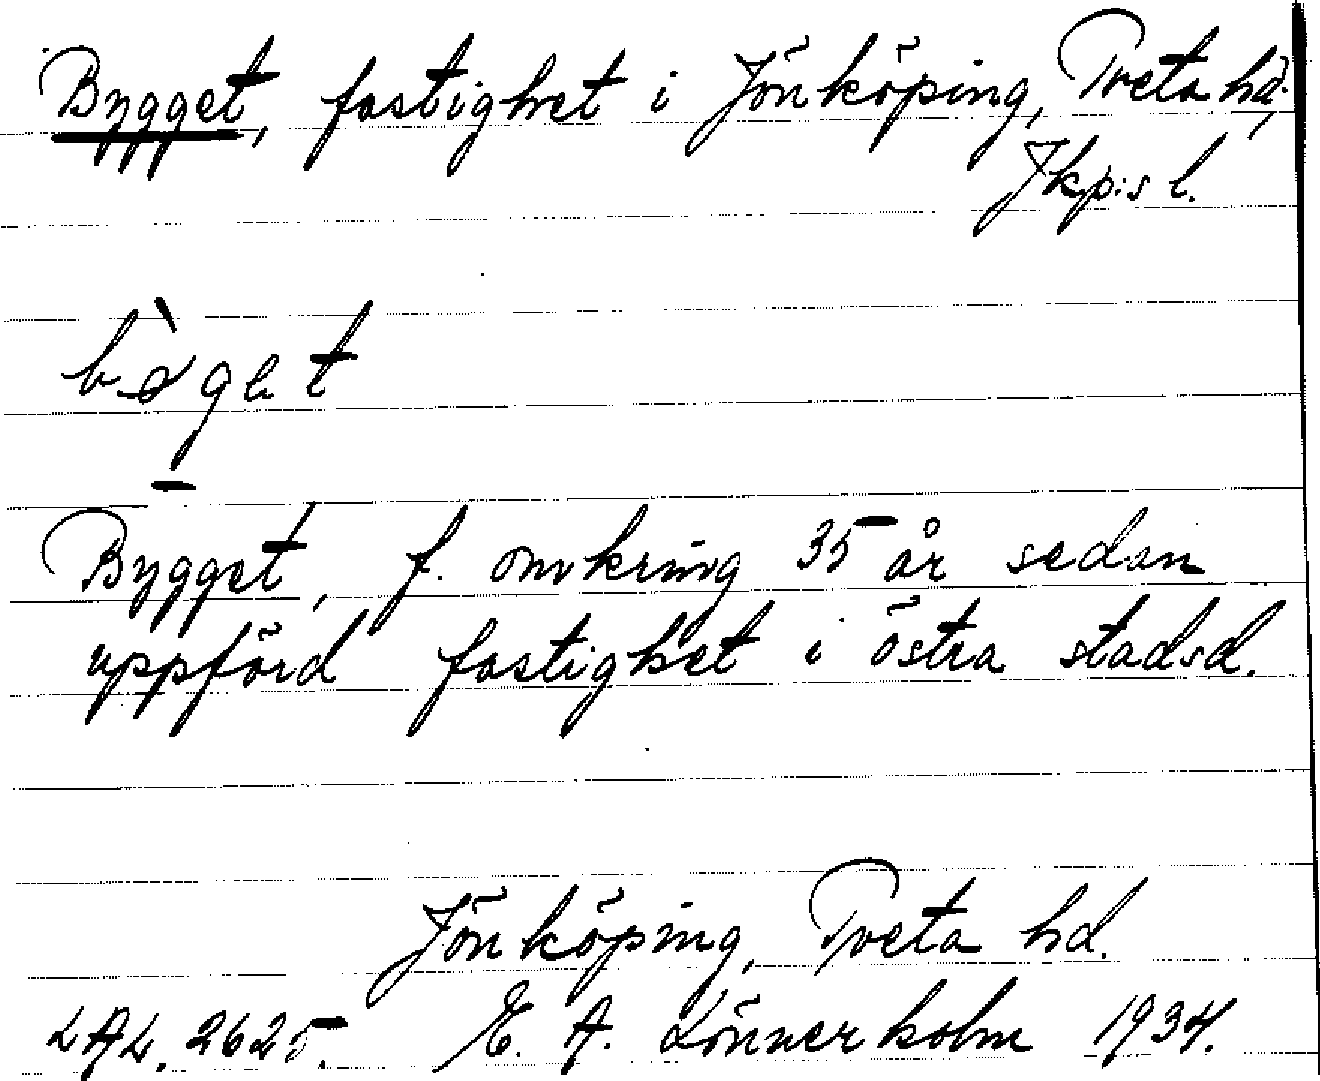 Bygget, fastighet i Jönköping, Tveta hd,
Jkp:s l.
bỳget
Bygget, f. omkring 35 år sedan
uppförd fastighet i östra stadsd.
Jönköping, Tveta hd.
LAL. 2625. E. A. Lönnerholm 1934.